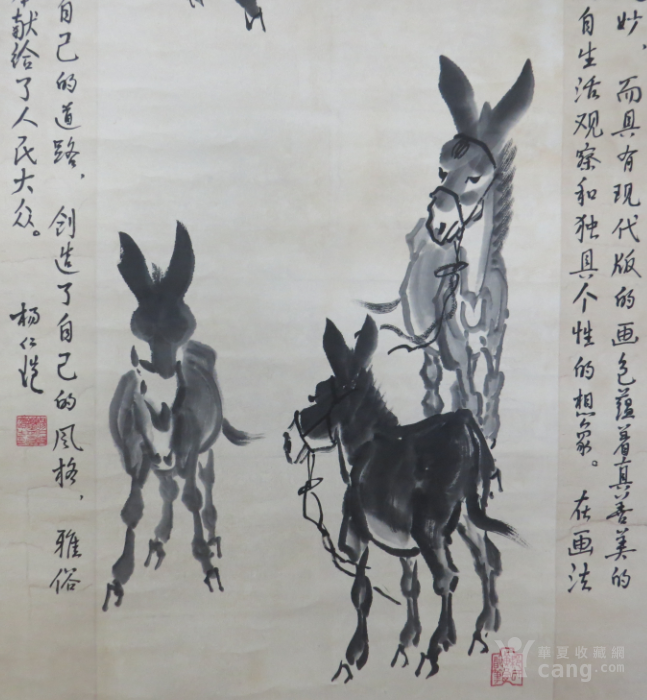 妙，而具有现代版的画色蕴着真善美的
自生活观察和独具个性的想象。在画法
自己的道路，创造了自己的风格，雅俗
献给了人民大众。
杨仁恺
華夏收藏網
cang.com